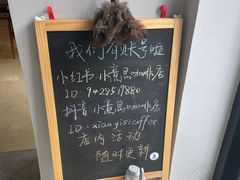 我们有账号啦
小红书:小意思咖啡店
ID: 9428519880
抖音:小意思咖啡店
ID: xiaoyisicoffee
店内活动
随时更新